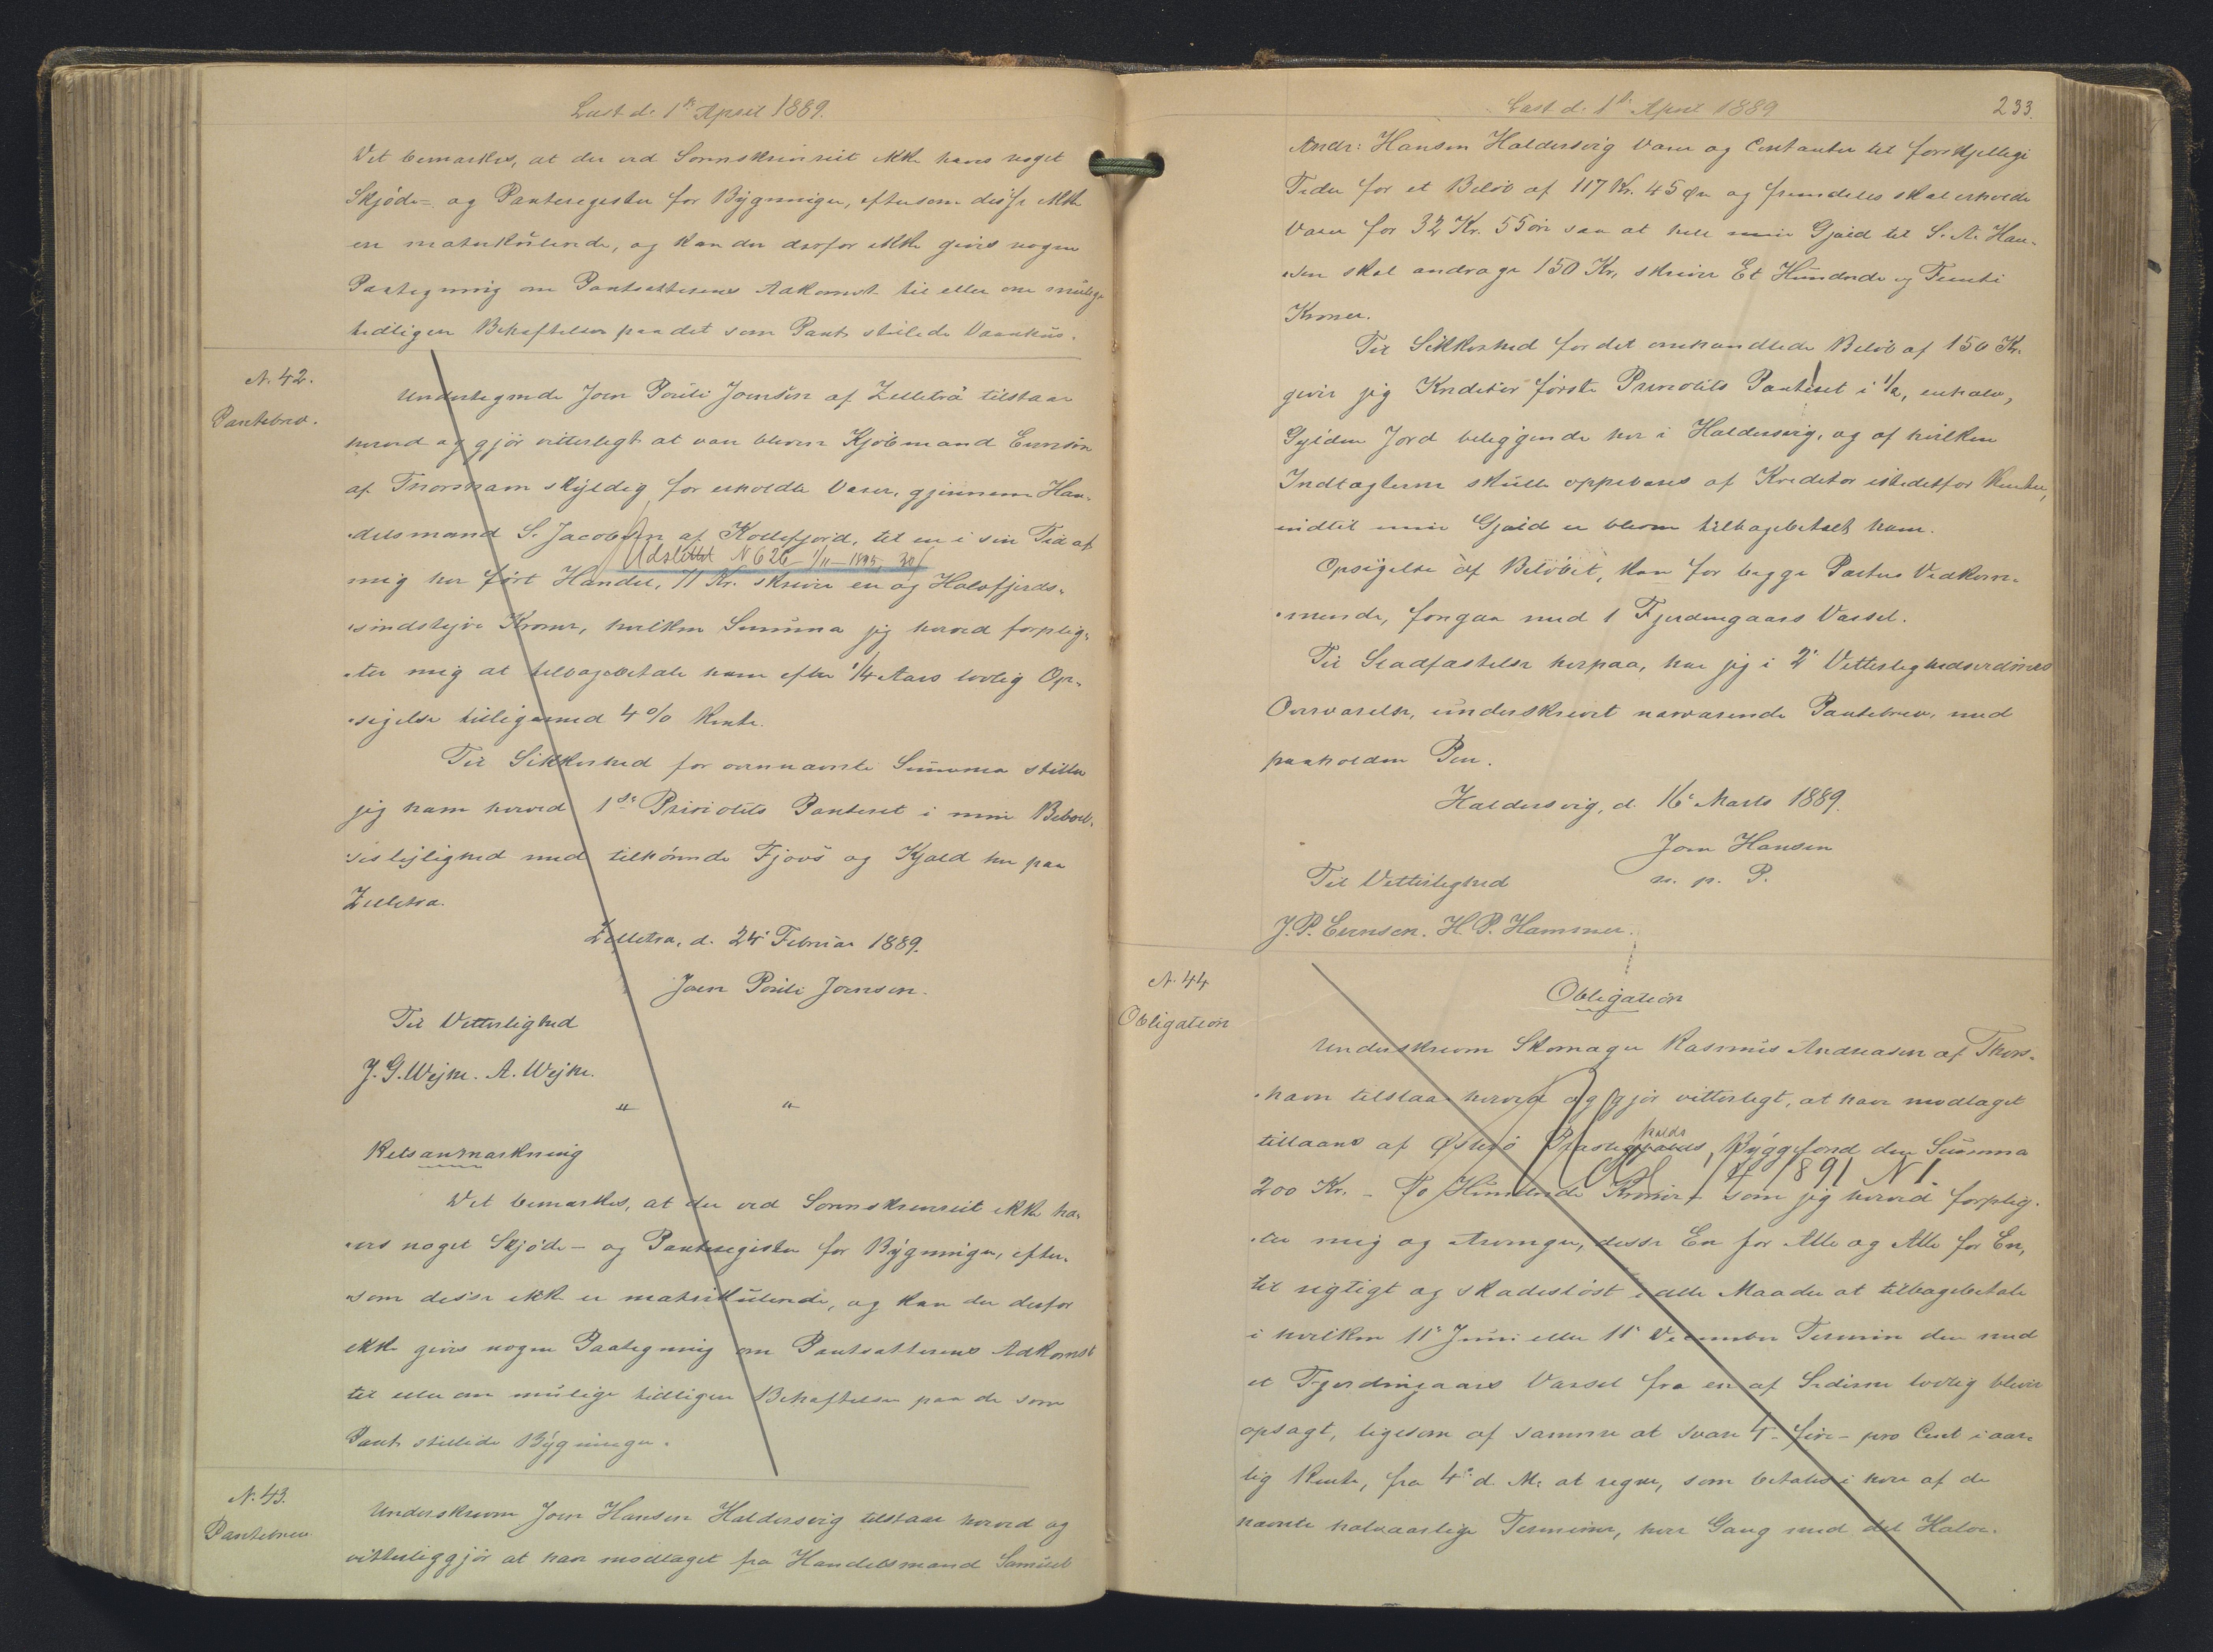 Læst d. 1ste April 1889.
Det bemærkes, at der ved Sorenskriveriet ikke haves noget
Skjøde- og Panteregister for Bygninger, eftersom disse ikke
ere matrikulerede, og kan der derfor ikke gives nogen
Paategning om Pantsætterens Adkomst til eller om mulige
tidligere Behæftelser paa det som Pant stillede Vaanhus.
N. 42.
Pantebrev.
Undertegnede Joen Pouli Joensen af Zelletrá tilstaar
herved og gjör vitterligt at være bleven Kjöbmand Evensen
af Thorshavn skyldig for erholdte Varer, gjennem Han-
delsmand S. Jacobsen af Kollefjord, til en i sin Tid af
Udslettet N 626 1/11 - 1895
mig her fört Handel, 71 Kr. skriver en og Halvfjerds-
sindstyve Kroner, hvilken Summa jeg herved forplig-
ter mig at tilbagebetale ham efter 1/4 Aars lovlig Op-
sigelse tilligemed 4% Rente.
Til Sikkerhed for ovennævnte Summa stiller
jeg ham herved 1ste Prioritets Panteret i min Beboel-
seslejlighed med tilhörende Fjøvs og Kjald her paa
Zelletra.
Zelletra, d. 24' Februar 1889.
Joen Pouli Joensen.
Til Vitterlighed
J. G. Wejhe. A. Wejhe.
" "
Retsanmærkning
Det bemærkes, at der ved Sorenskriveriet ikke ha-
ves noget Skjöde- og Panteregister for Bygninger, efter-
som disse ikke er matrikulerede, og kan der derfor
ikke gives nogen Paategning om Pantsætterens Adkomst
til eller om mulige tidligere Behæftelser paa de som
Pant stillede Bygninger.
N. 43.
Pantebrev.
Underskreven Joen Hansen Haldersvig tilstaar herved og
vitterliggjör at have modtaget fra Handelsmand Samuel
Læst d. 1ste April 1889
233.
Andr: Hansen Haldersvig Varer og Contanter til forskjellige
Tider for et Belöb af 117 Kr. 45 Öre og fremdeles skal erholde
Varer for 32 Kr. 55 öre saa at hele min Gjæld til S. A. Han-
sen skal andrage 150 Kr, skriver Et Hundrede og Femti
Kroner.
Til Sikkerhed for det omhandlede Belöb af 150 Kr.
giver jeg Kreditor förste Prioritets Panteret i 1/2, en halv,
Gylden Jord beliggende her i Haldersvig, og af hvilken
Indtægterne skulle oppebæres af Kreditor istedetfor Renter,
indtil min Gjæld er bleven tilbagebetalt ham.
Opsigelse af Belöbet, kan for begge Parters Vedkom-
mende, foregaa med 1 Fjerdingaars Varsel.
Til Stadfæstelse herpaa, har jeg i 2' Vitterlighedsvidners
Overværelse, underskrevet nærværende Pantebrev, med
paaholden Pen.
Haldersvig, d. 16' Marts 1889.
Joen Hansen
m. p. P.
Til Vitterlighed
J. P. Evensen. H. P. Hammer.
N. 44
Obligation
Obligation
Underskreven Skomager Rasmus Andreasen af Thors-
havn tilstaar herved og gjör vitterligt, at have modtaget
tillaans af Österö Præstegjælds Byggefond den Summa
kalds
Udsl 1891 N 1
200 Kr. - To Hundrede Kroner - som jeg herved forplig-
ter mig og Arvinger, disse En for Alle og Alle for En,
til rigtigt og skadeslöst i alle Maader at tilbagebetale
i hvilken 11' Juni eller 11' December Termin den med
et Fjerdingaars Varsel fra en af Siderne lovlig bliver
opsagt, ligesom af samme at svare 4- fire - pro Cent i aar-
lig Rente, fra 4de d. M: at regne, som betales i hver af de
nævnte halvaarlige Terminer, hver Gang med det Halve.